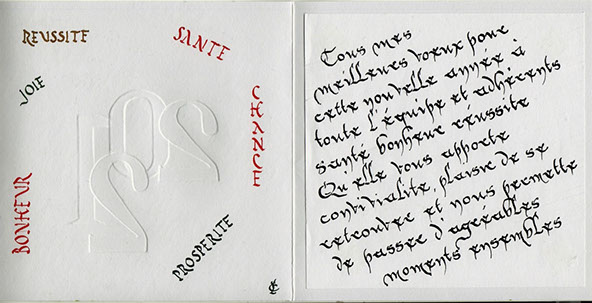 REUSSITE
SANTE
JOIE
CHANCE
BONHEUR
PROSPERITE
Tous mes
meilleurs voeux pour
cette nouvelle année à
toute l'équipe et adhérents
santé bonheur réussite
Qu'elle vous apporte
convivialité, plaisir de se
retrouver et nous permette
de passer d'agréables
moments ensembles